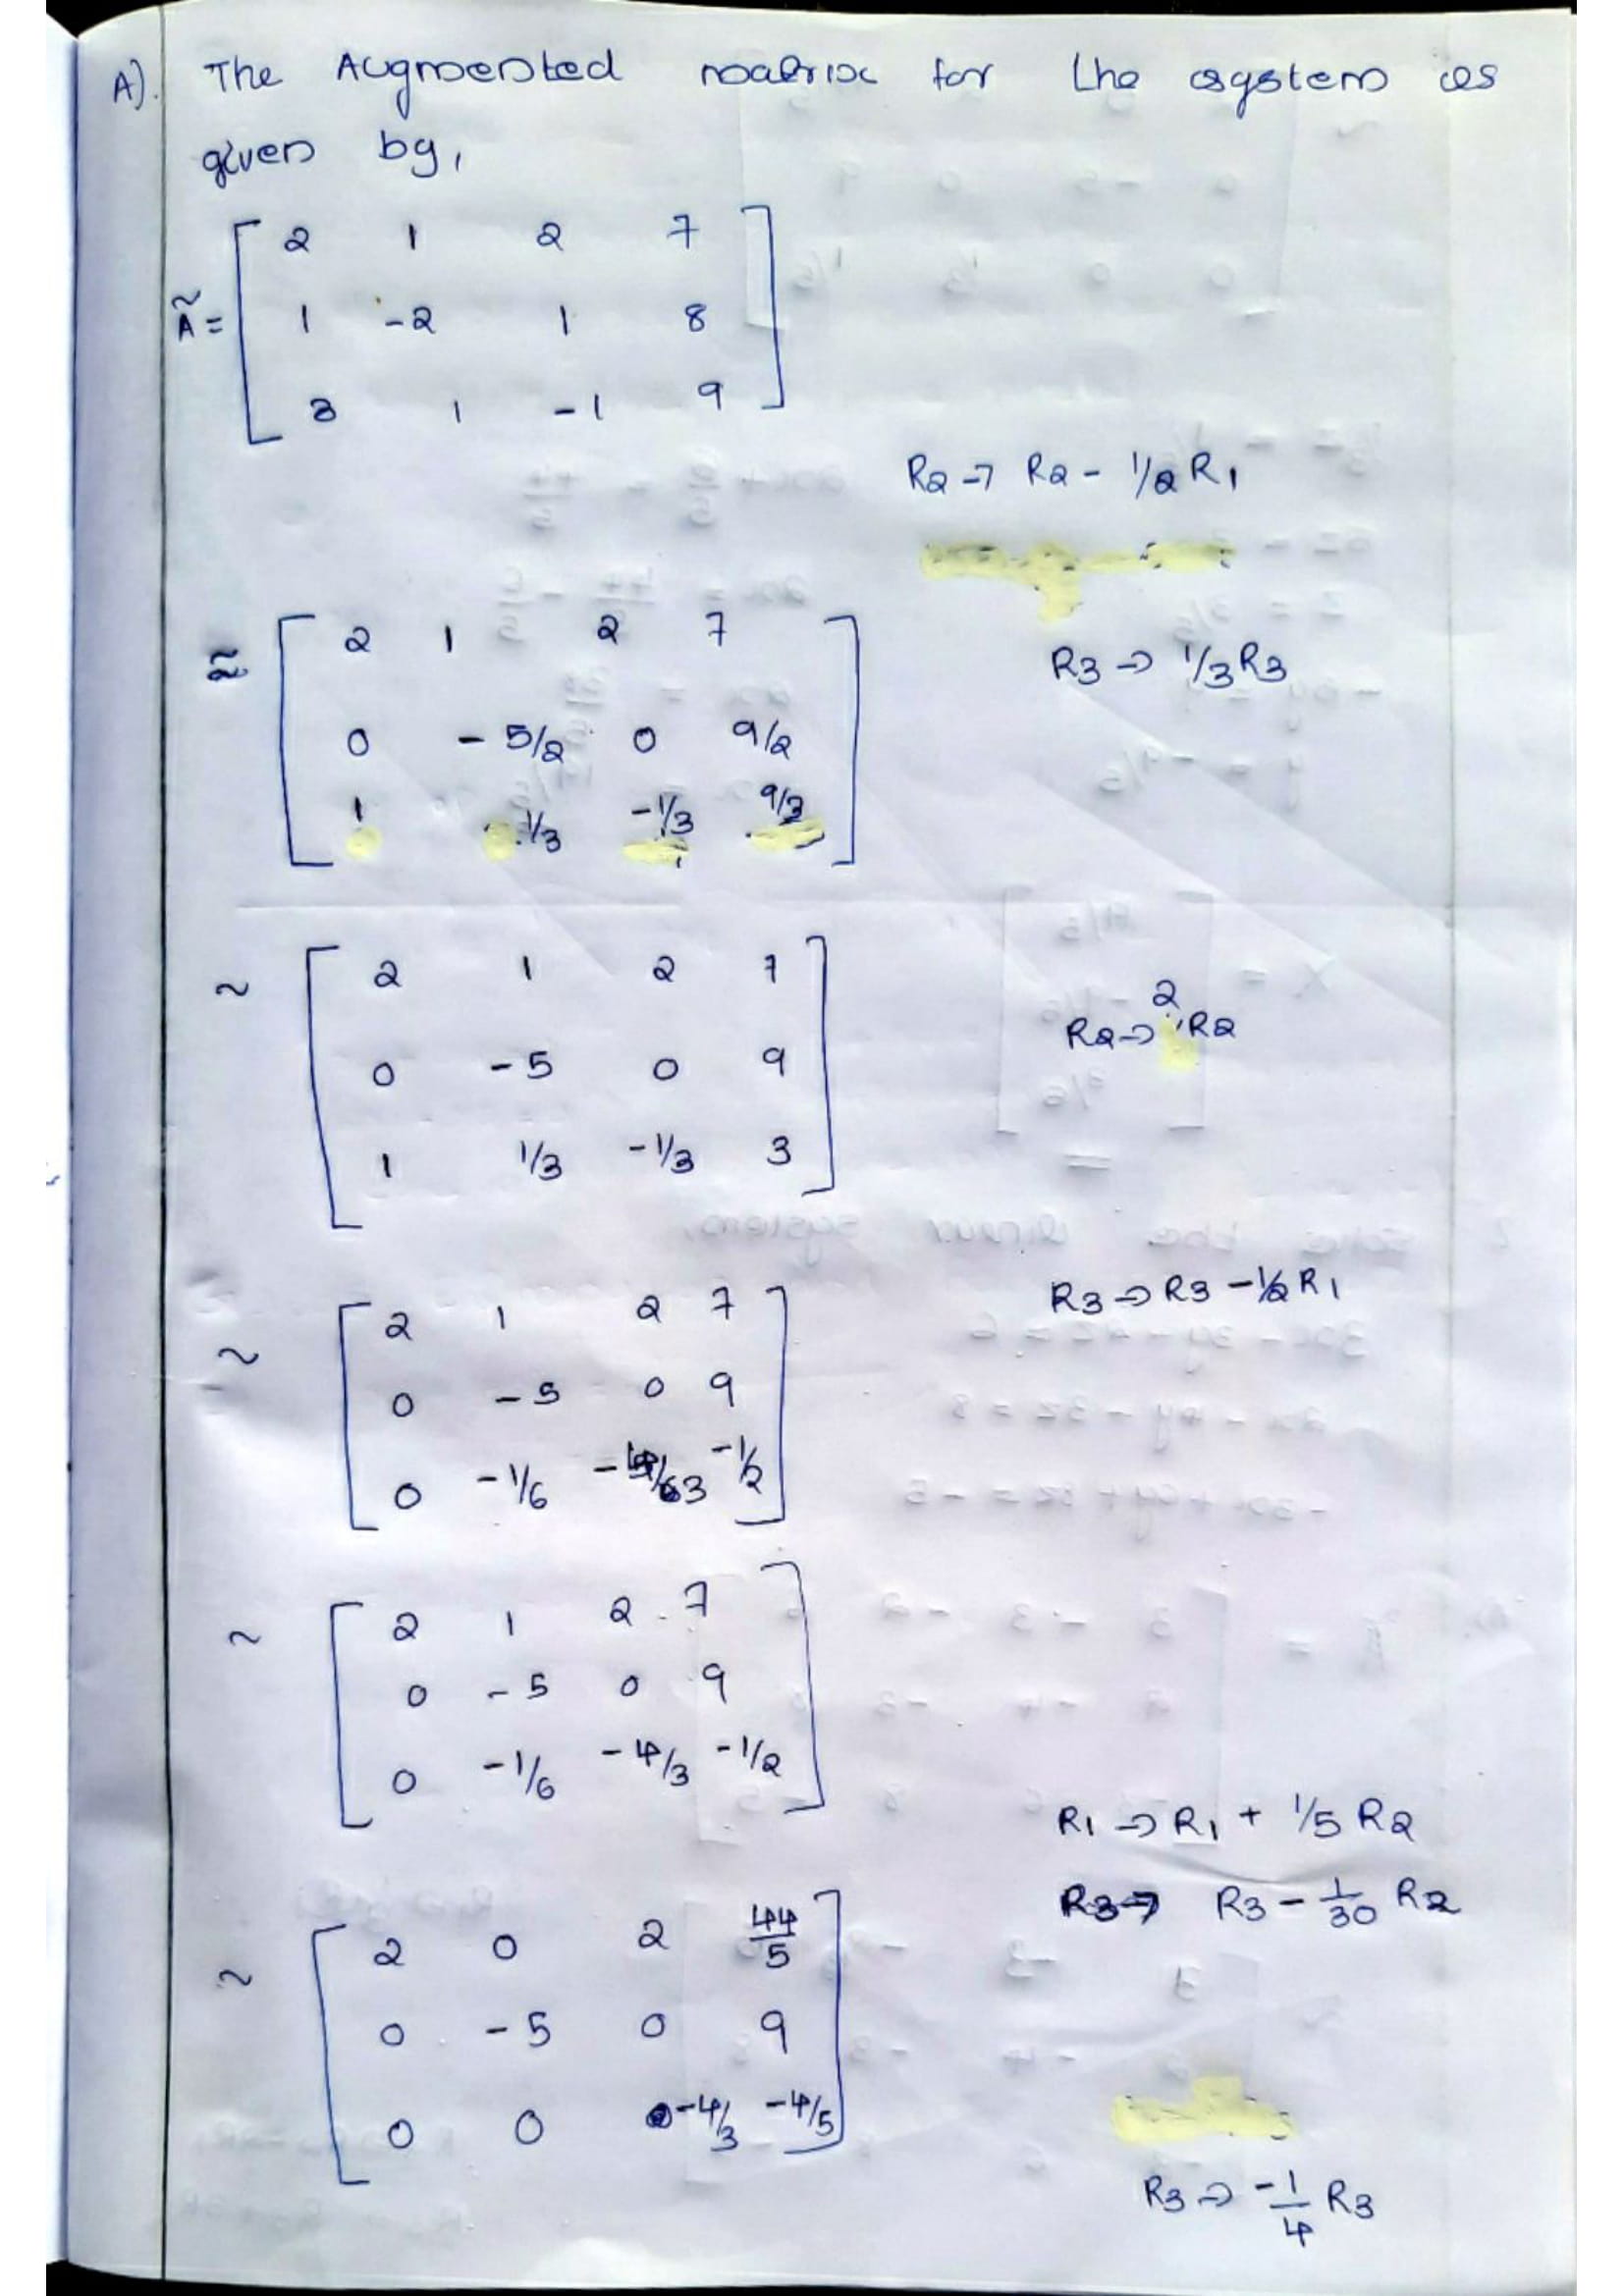 A). The Augmented matrix for the system is
given by,
2 1 2 7
Ã = 1 -2 1 8
3 1 -1 9
R2 → R2 - 1/2 R1
≅ 2 1 2 7
R3 → 1/3 R3
0 -5/2 0 9/2
1 1/3 -1/3 9/3
~ 2 1 2 7
R2 → 2 R2
0 -5 0 9
1 1/3 -1/3 3
R3 → R3 - 1/2 R1
~ 2 1 2 7
0 -5 0 9
0 -1/6 -1/2
~ 2 1 2 7
0 -5 0 9
0 -1/6 -4/3 -1/2
R1 → R1 + 1/5 R2
R3 → R3 - 1/30 R2
~ 2 0 2 44/5
0 -5 0 9
0 0 -4/3 -4/5
R3 → -1/4 R3